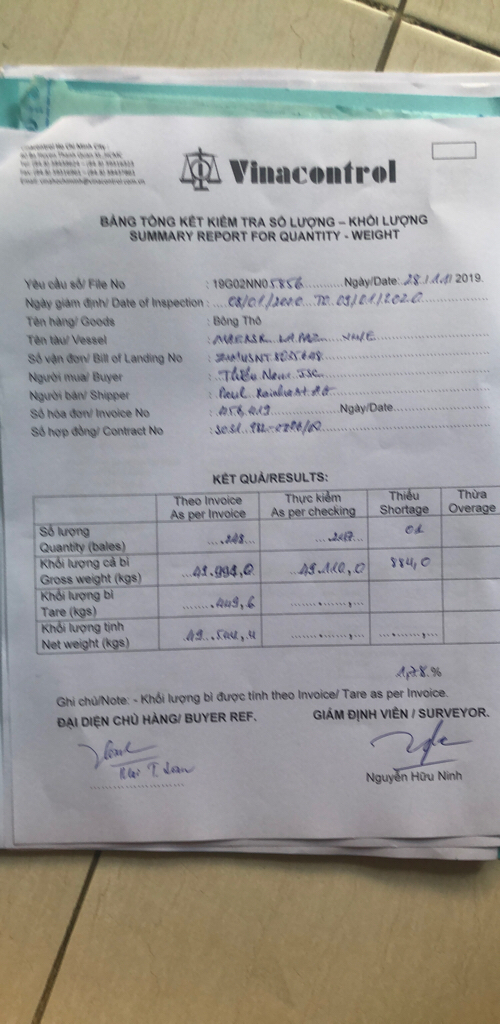 Vinacontrol Ho Chi Minh City
Vinacontrol
BẢNG TỔNG KẾT KIỂM TRA SỐ LƯỢNG – KHỐI LƯỢNG
SUMMARY REPORT FOR QUANTITY - WEIGHT
Yêu cầu số/ File No : 19G02NN05856 Ngày/Date: 28/11/ 2019.
Ngày giám định/ Date of Inspection : 08/01/2020 TO 09/01/2020
Tên hàng/ Goods : Bông Thô
Tên tàu/ Vessel : MAERSK
Số vận đơn/ Bill of Landing No :
Người mua/ Buyer : Thiên Nam JSC
Người bán/ Shipper : Paul Reinhart AG
Số hóa đơn/ Invoice No : Ngày/Date
Số hợp đồng/ Contract No :
KẾT QUẢ/RESULTS:
Theo Invoice As per Invoice Thực kiểm As per checking Thiếu Shortage Thừa Overage
Số lượng Quantity (bales) 248 247 01
Khối lượng cả bì Gross weight (kgs) 49.994,0 49.110,0 884,0
Khối lượng bì Tare (kgs) 449,6
Khối lượng tịnh Net weight (kgs) 49.544,4
1,78 %
Ghi chú/Note: - Khối lượng bì được tính theo Invoice/ Tare as per Invoice.
ĐẠI DIỆN CHỦ HÀNG/ BUYER REF. GIÁM ĐỊNH VIÊN / SURVEYOR.
Nguyễn Hữu Ninh